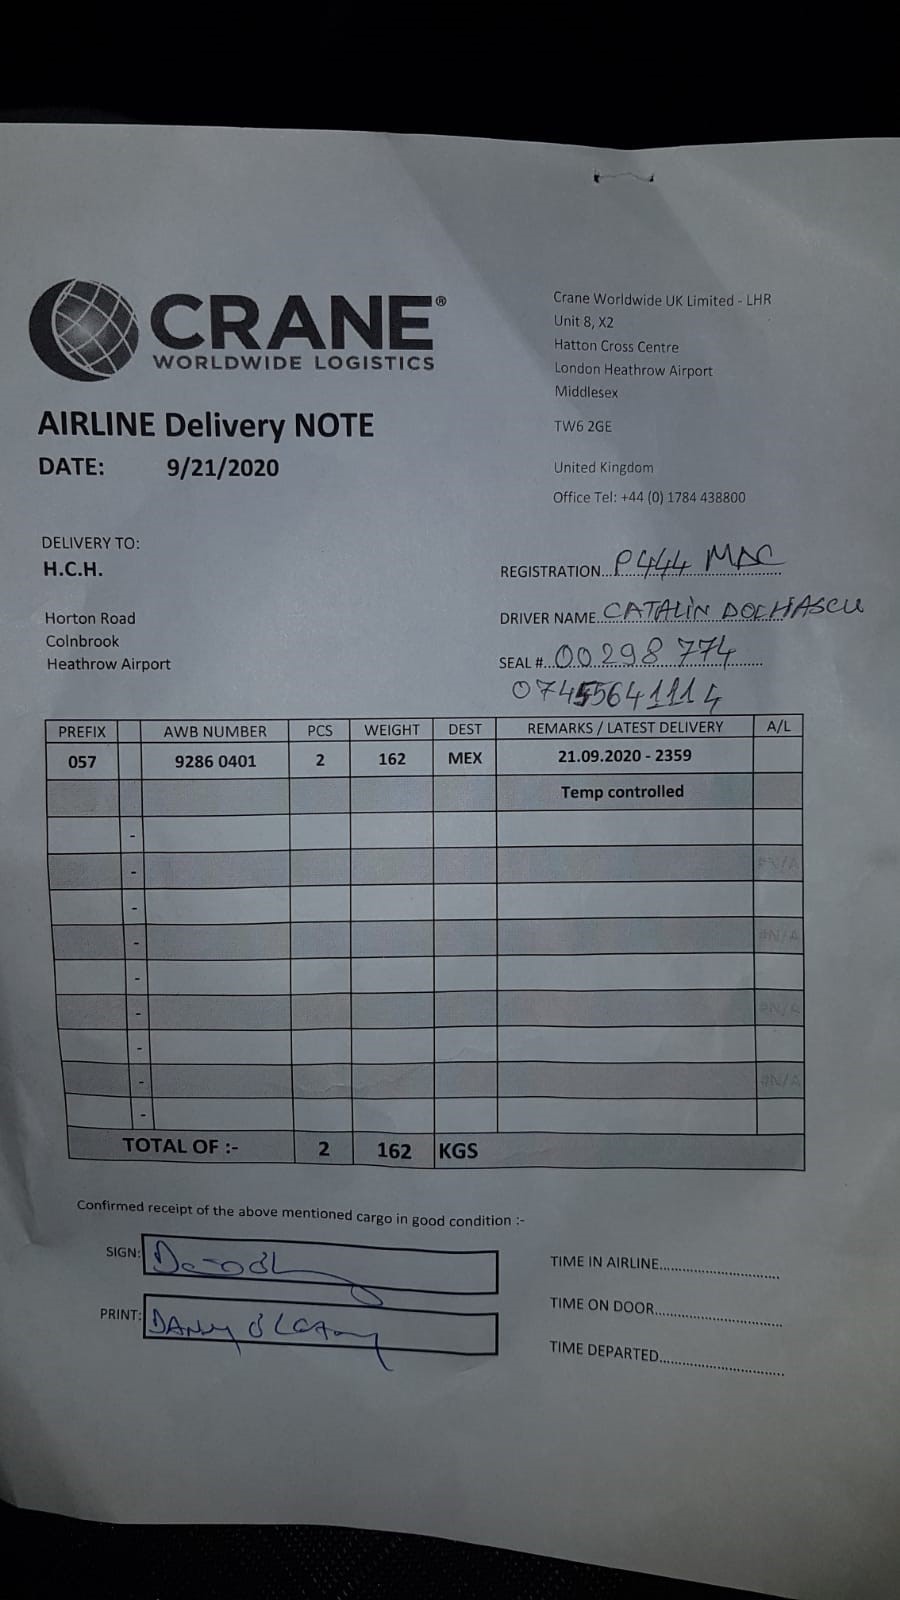 CRANE®
WORLDWIDE LOGISTICS
Crane Worldwide UK Limited - LHR
Unit 8, X2
Hatton Cross Centre
London Heathrow Airport
Middlesex
TW6 2GE
United Kingdom
Office Tel: +44 (0) 1784 438800
AIRLINE Delivery NOTE
DATE: 9/21/2020
DELIVERY TO:
H.C.H.
Horton Road
Colnbrook
Heathrow Airport
REGISTRATION...P444 MAC
DRIVER NAME...CATALIN DOCHIASCU
SEAL #...00298 774
07455641114
PREFIX AWB NUMBER PCS WEIGHT DEST REMARKS / LATEST DELIVERY A/L
057 9286 0401 2 162 MEX 21.09.2020 - 2359
Temp controlled
-
- #N/A
-
- #N/A
-
- #N/A
-
- #N/A
-
TOTAL OF :- 2 162 KGS
Confirmed receipt of the above mentioned cargo in good condition :-
SIGN:
PRINT: DANNY O'LEARY
TIME IN AIRLINE..............................
TIME ON DOOR..............................
TIME DEPARTED..............................